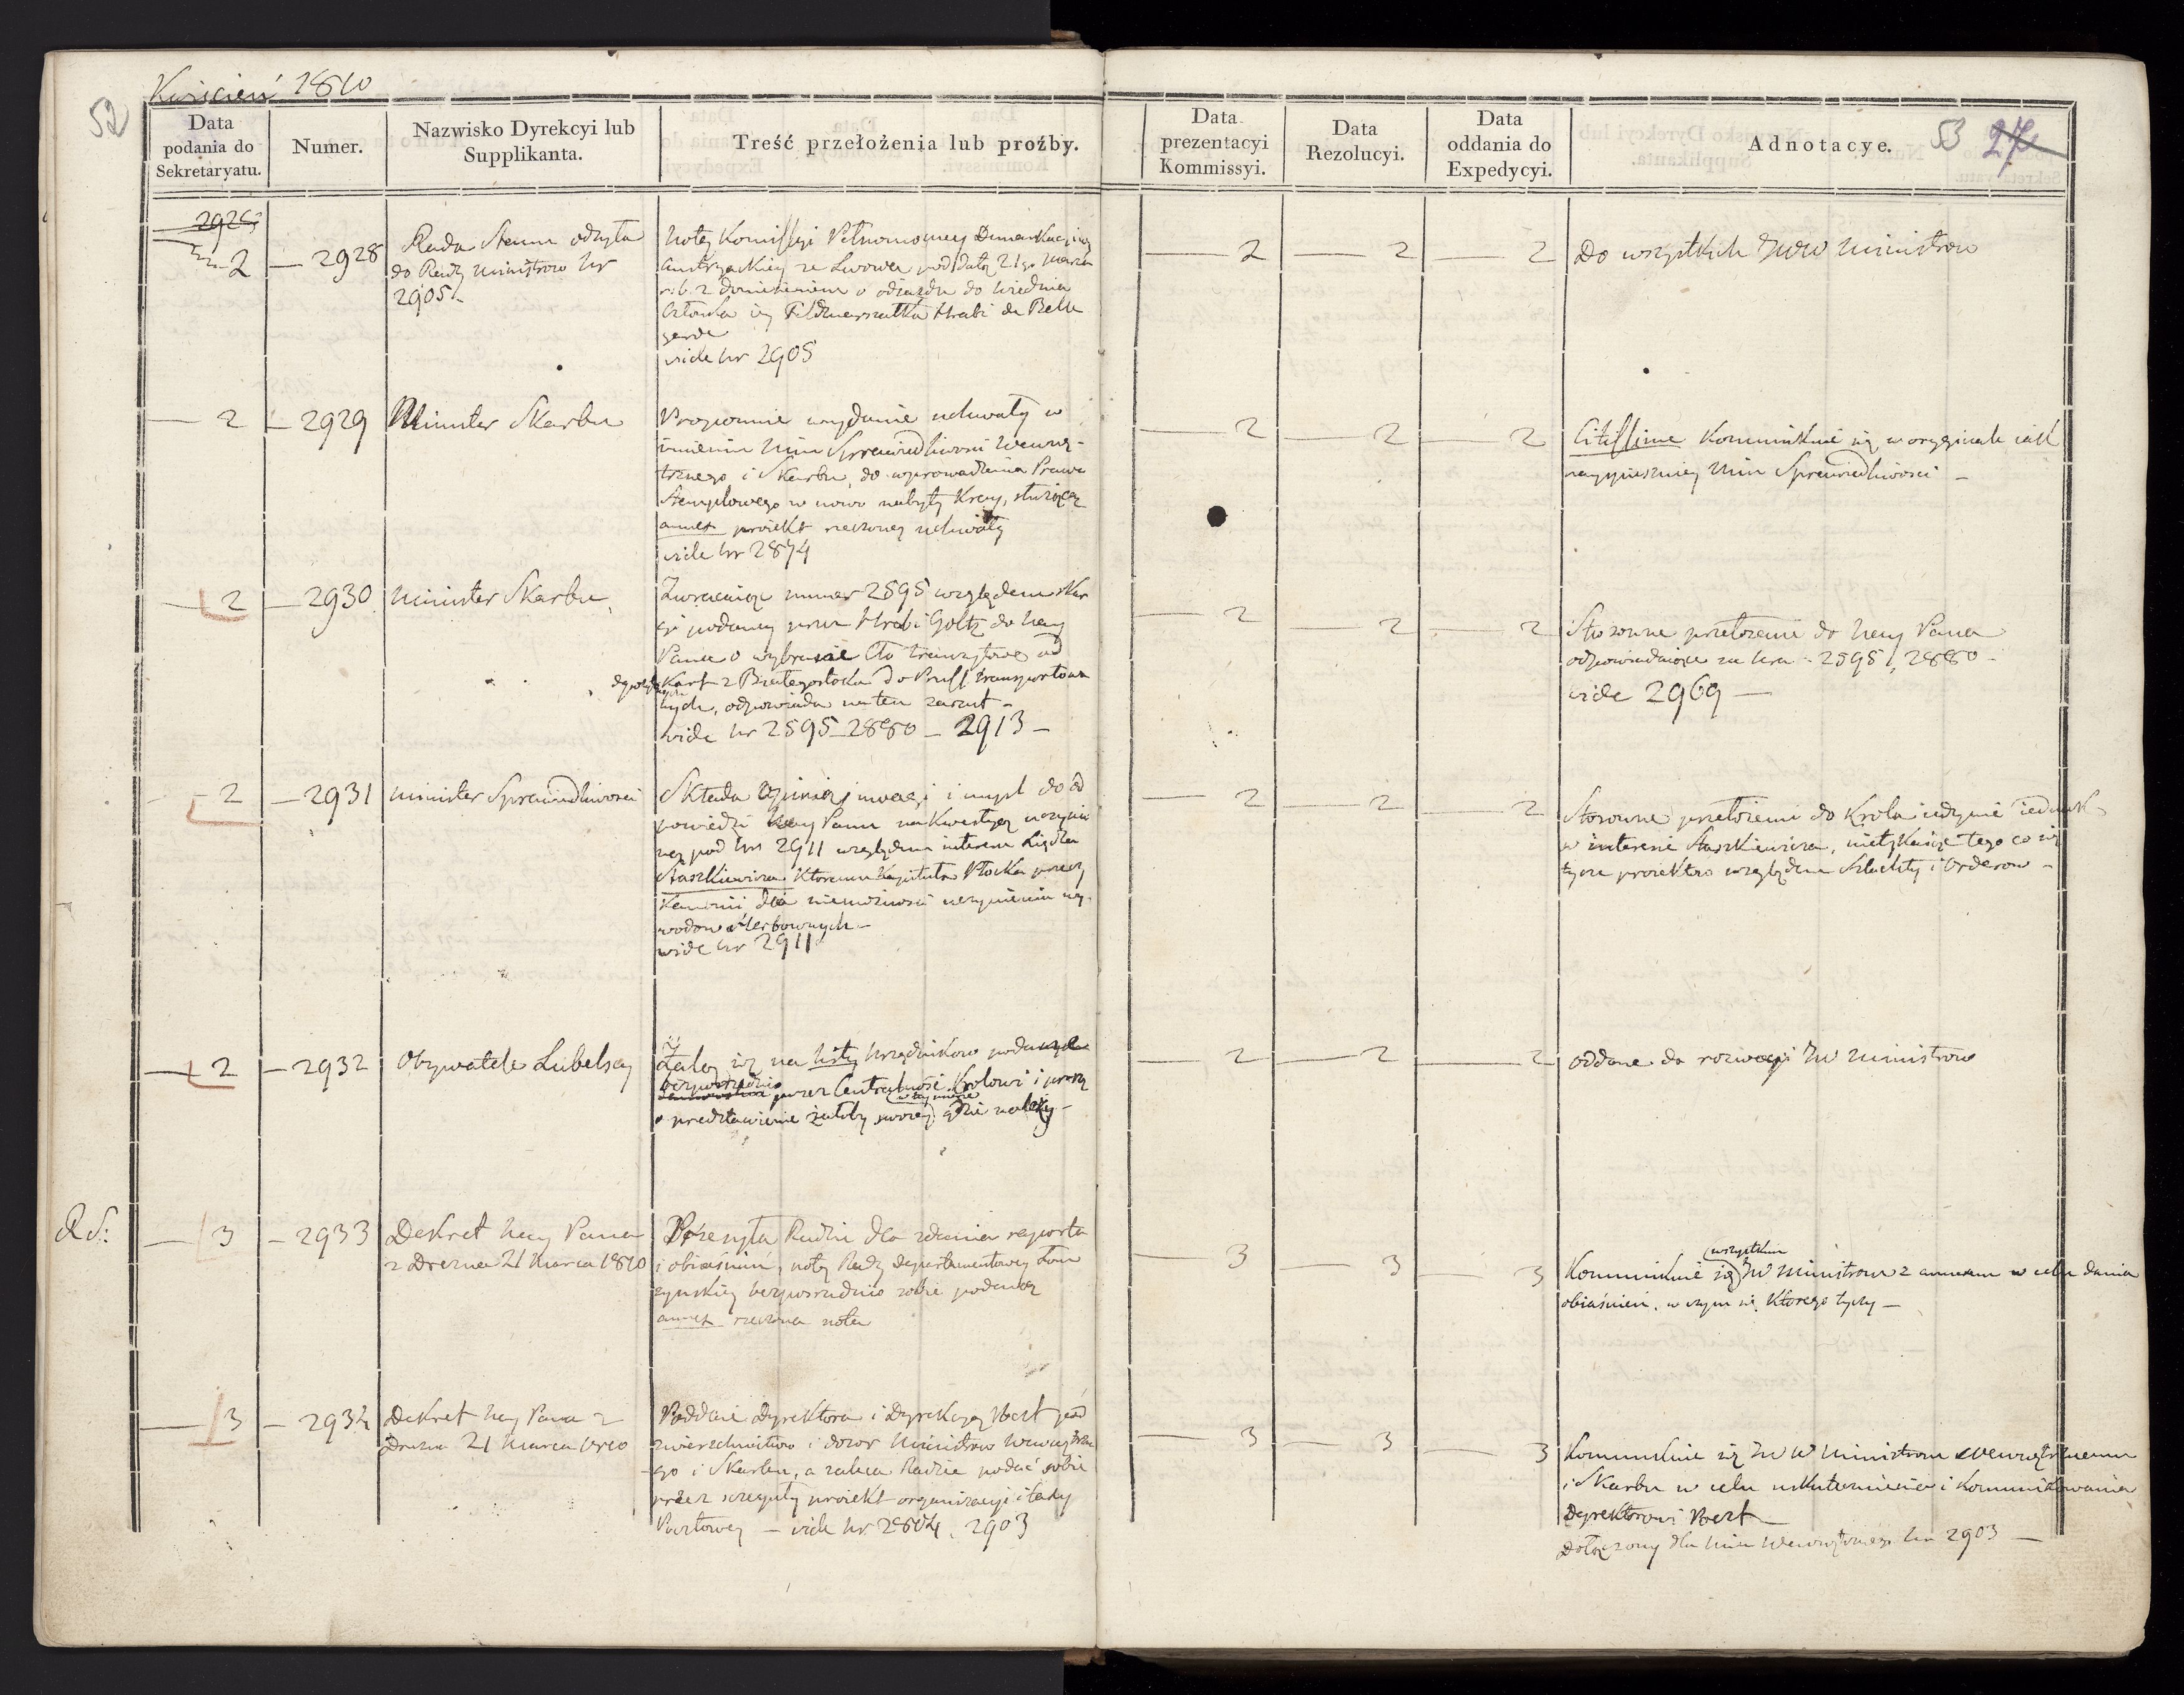 Kwiecień 1810
52
Data podania do Sekretaryatu.
Numer.
Nazwisko Dyrekcyi lub Supplikanta.
Treść przełożenia lub proźby.
Data prezentacyi Kommissyi.
Data Rezolucyi.
Data oddania do Expedycyi.
Adnotacye.
53 27
2925
2 — 2928
Rada Stanu odsyła
do Rady Ministrow Nr
2905
Notę Komissyi Pełnomocney Demarkacyiney
Austryackiey ze Lwowa pod datą 21go Marca
r. b. z doniesieniem o odjeździe do Wiednia
Członka iey Feldmarszałka Hrabi de Belle
garde
vide Nr 2905
— 2 — 2 — 2
Do wszystkich JWW Ministrow
— 2 — 2929
Minister Skarbu
Proponuie wydanie uchwały w
imieniu Min Sprawiedliwości Wewnę-
trznego i Skarbu, do wprowadzenia Prawa
Stemplowego w nowo nabyty Kray, służącą
annex proiekt rzeczoney uchwały
vide Nr 2874
— 2 — 2 — 2
Citissime Kommunikuie się w oryginale iak
nayspieszniey Min Sprawiedliwości —
— 2 — 2930
Minister Skarbu
Zwracaiąc numer 2595 względem skar
gi podaney przez Hrabi Goltz do Nay
Pana o wybranie Cła tranzytowe od
Kart z Białegostoka do Pruss transportowa
nych, odpowiada na ten zarzut —
vide Nr 2595 — 2880 — 2913 —
— 2 — 2 — 2
Stosowne przełożenie do Nay Pana
odpowiadaiące na Nra 2595 i 2880 —
vide 2969 —
— 2 — 2931
Minister Sprawiedliwości
Składa opinię swoię i myśl do od
powiedzi Nay Panu na kwestyę uczynio
ną pod Nrs 2911 względem interesu Xiędza
Staszkiewicza, któremu Kapituła Płocka przeczy
Kanonii dla niemożności uczynienia wy-
wodow Herbownych —
vide Nr 2911
— 2 — 2 — 2
Stosowne przełożenie do Króla iedynie iednak
w interesie Staszkiewicza, nietykaiąc tego co się
tycze proiektow względem Szlachty i Orderow —
— 2 — 2932
Obywatele Lubelscy
Żalą się na listy Urzędnikow podanych
bezpośrednio przez Centralność Krolowi i proszą
o przedstawienie żałoby swoiey (w tey mierze) gdzie należy —
— 2 — 2 — 2
Oddane do rozwagi JW Ministrow
R. S.
— 3 — 2933
Dekret Nay Pana
z Drezna 21 Marca 1810
Przesyła Radzie dla zdania raportu
i obiaśnień, notę Rady Departamentowey Łom
żyńskiey bezpośrednio sobie podaną
annex rzeczona nota
— 3 — 3 — 3
Kommunikuie się (wszystkim) JW Ministrom z annexem w celu dania
obiaśnień, w czym się ktorego tyczy —
— 3 — 2934
Dekret Nay Pana z
Drezna 21 Marca 1810
Poddaie Dyrektora i Dyrekcyą Poczt pod
zwierzchnictwo i dozor Ministrow Wewnętrzne
go i Skarbu, a zaleca Radzie podać sobie
przez szczegoły proiekt organizacyi i taxy
Pocztowey — vide Nr 2804, 2903
— 3 — 3 — 3
Kommunikuie się JWW Ministrom Wewnętrznemu
i Skarbu w celu uskutecznienia i Kommunikowania
Dyrektorowi Poczt —
Dołączony dla Min Wewnętrznego Nr 2903 —